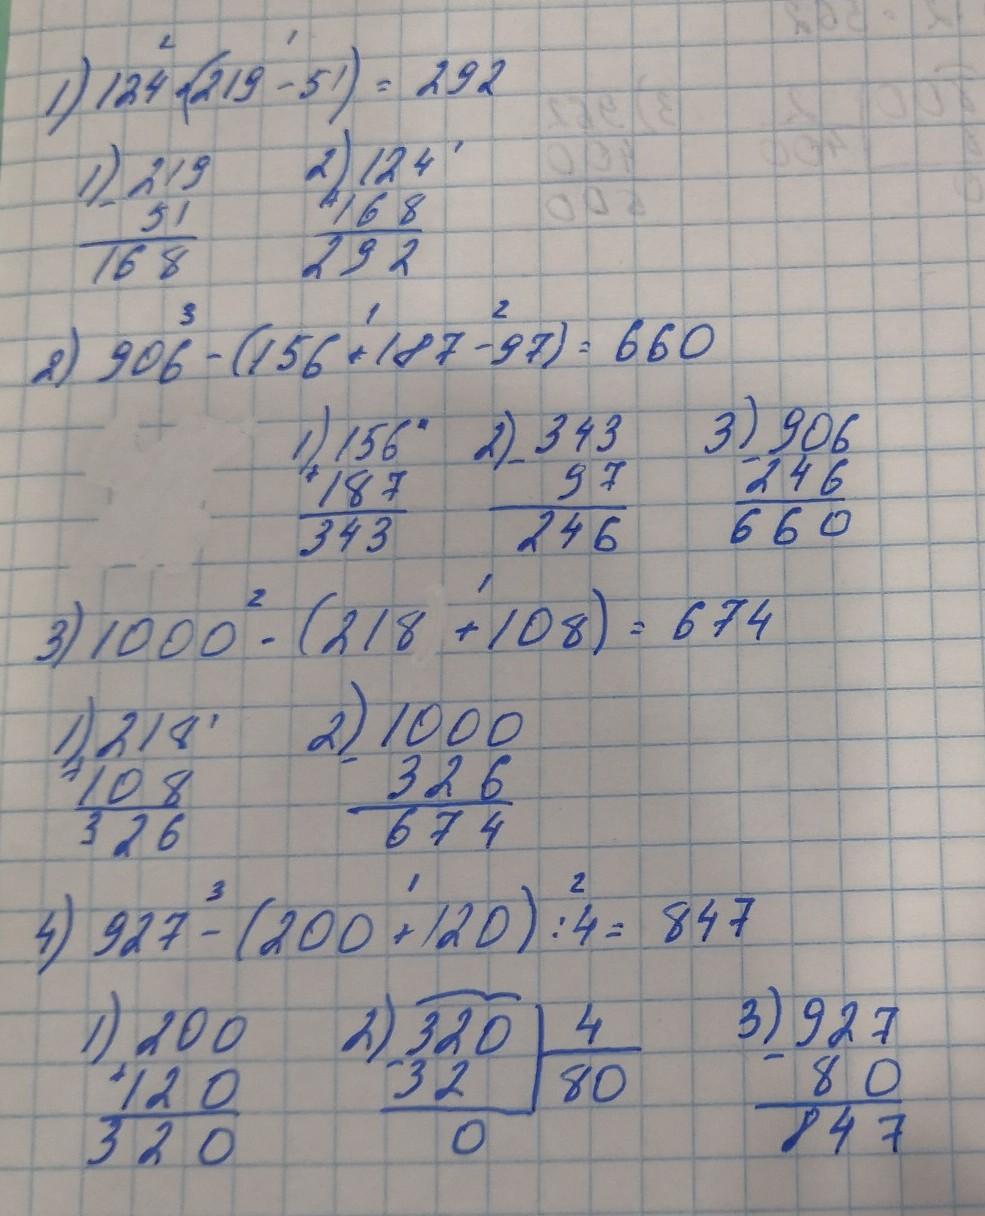 2 1
1) 124 + (219 - 51) = 292
1) 219 2) 124 '
- 51 + 168
168 292
3 1 2
2) 906 - (156 + 187 - 97) = 660
1) 156 " 2) - 343 3) 906
+ 187 97 - 246
343 246 660
2 1
3) 1000 - (218 + 108) = 674
1) 218 ' 2) 1000
+ 108 - 326
326 674
3 1 2
4) 927 - (200 + 120) : 4 = 847
1) 200 2) 320 4 3) 927
+ 120 - 32 80 - 80
320 0 847